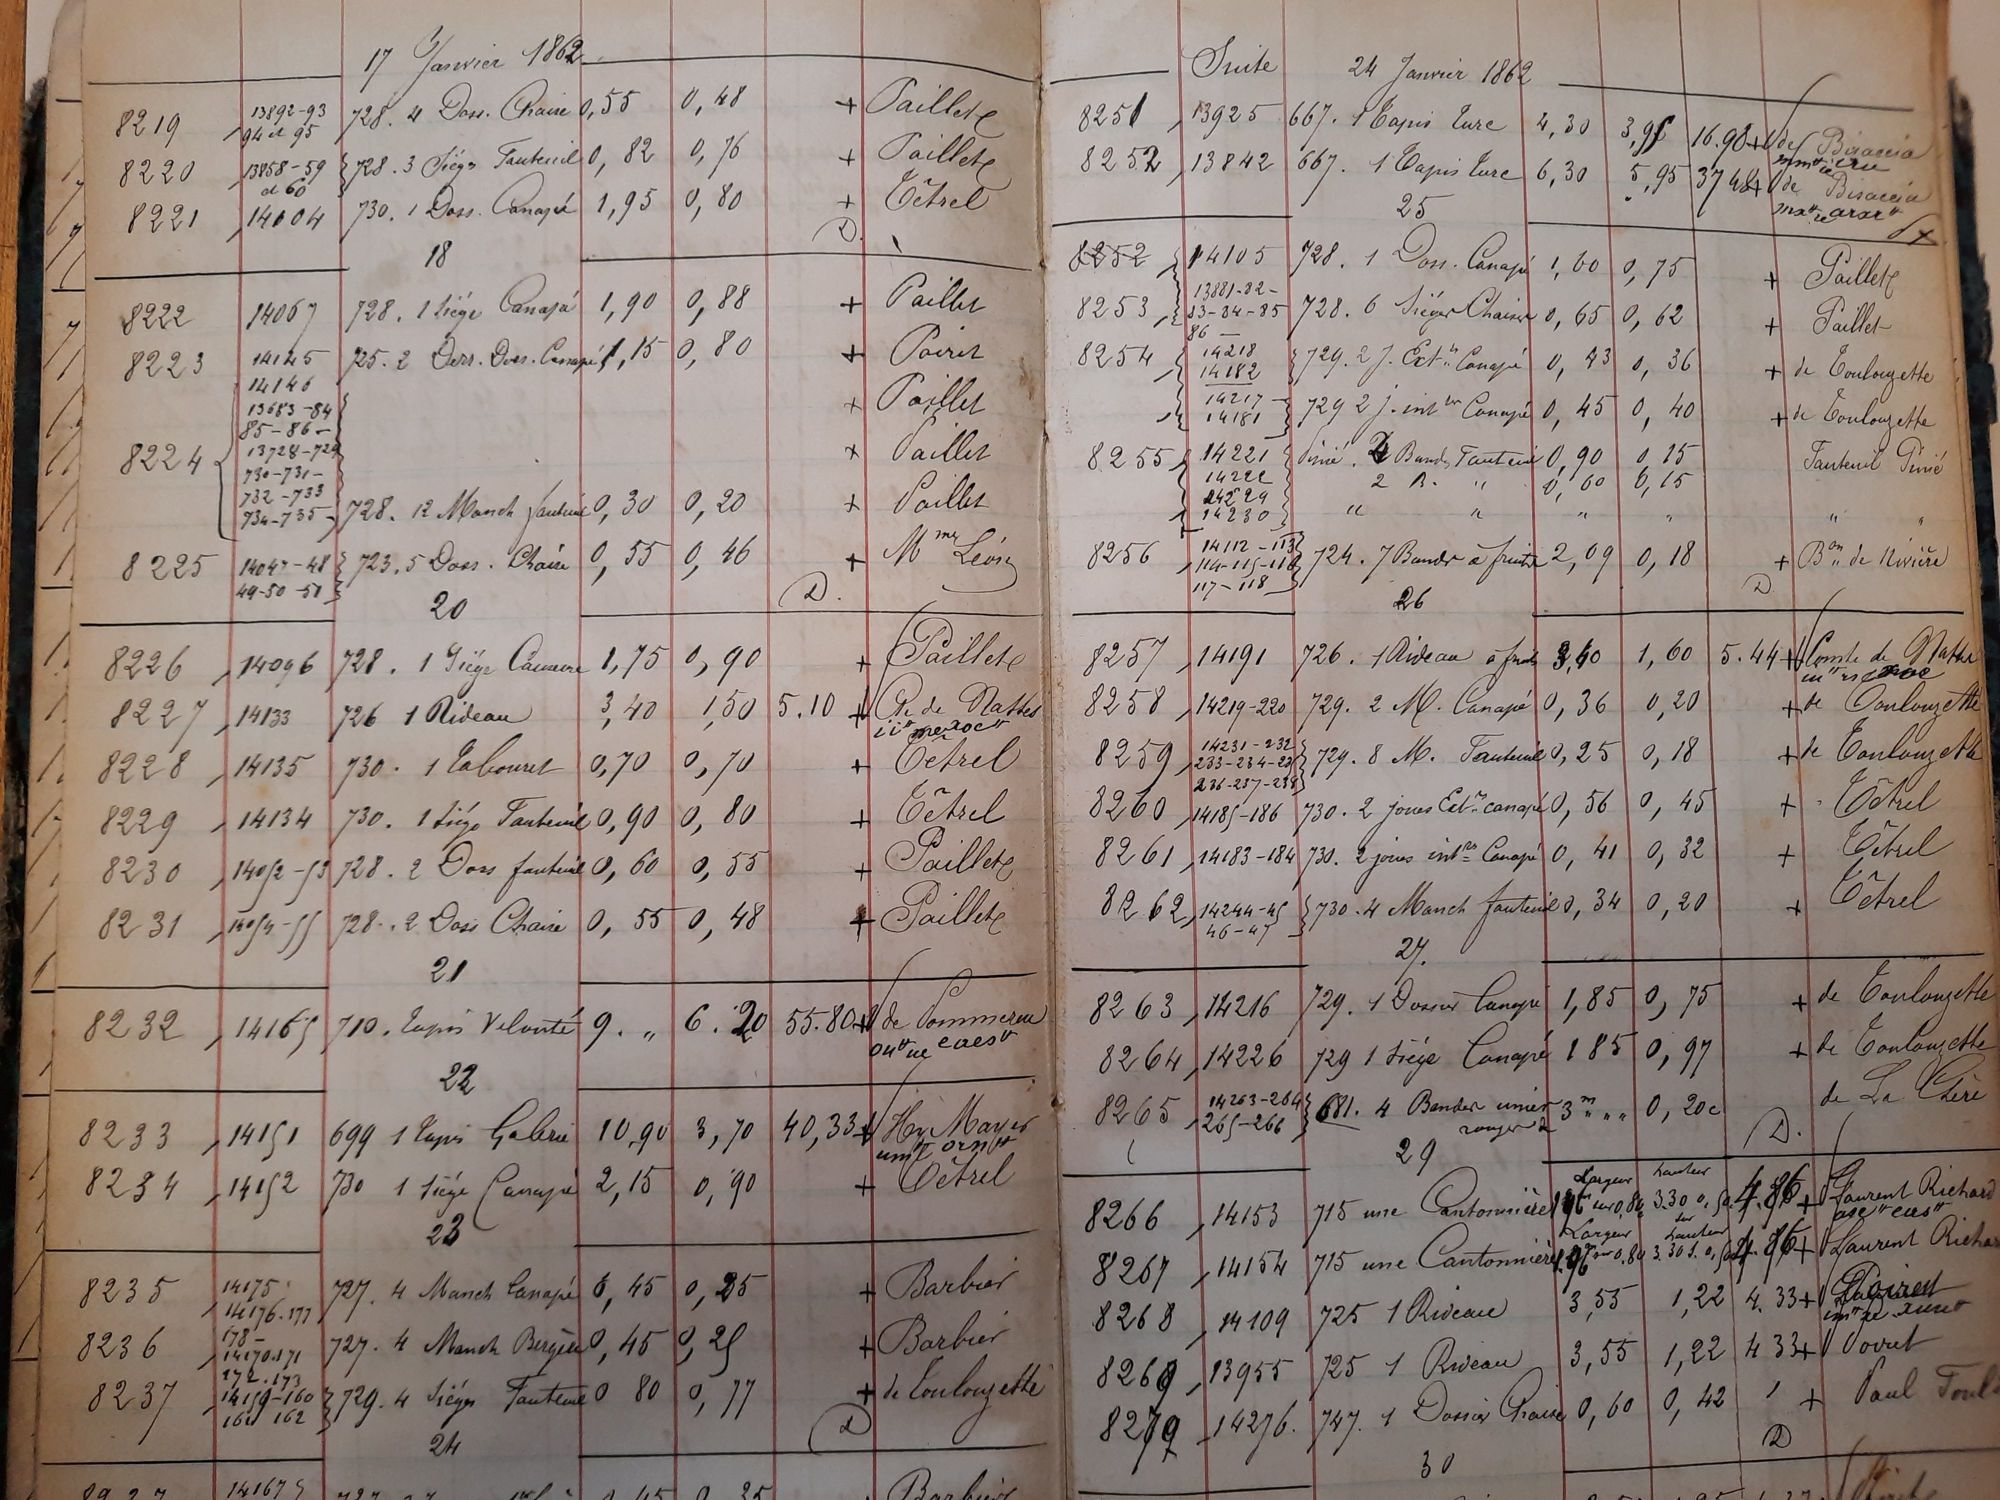 17 Janvier 1862
8219 13892-93 94 et 95 728. 4 Doss. Chaise 0,55 0,48 + Paillet
8220 13858-59 et 60 728. 3 Siéges Fauteuil 0,82 0,76 + Paillet
8221 14004 730. 1 Doss. Canapé 1,95 0,80 + Têtrel
D.
18
8222 14067 728. 1 Siége Canapé 1,90 0,88 + Paillet
8223 14145 14146 725. 2 Derr. Doss. Canapé 1,15 0,80 + Poiret
+ Paillet
8224 13683-84 85-86- 13728-729 730-731- 732-733 734-735- 728. 12 Manch fauteuil 0,30 0,20 + Paillet
+ Paillet
8225 14047-48 49-50-51 723. 5 Doss. Chaise 0,55 0,46 + Mme Léon
D.
20
8226 14096 728. 1 Siége Causeuse 1,75 0,90 + Paillet
8227 14133 726 1 Rideau 3,40 1,50 5.10 + Cte de Nattes
8228 14135 730. 1 Tabouret 0,70 0,70 + Têtrel
8229 14134 730. 1 Siége Fauteuil 0,90 0,80 + Têtrel
8230 14052-53 728. 2 Doss fauteuil 0,60 0,55 + Paillet
8231 14054-55 728. 2 Doss Chaise 0,55 0,48 + Paillet
21
8232 14165 710. Tapis Velouté 9. „ 6.20 55.80 + de Pommereu
22
8233 14151 699 1 Tapis Galerie 10,90 3,70 40,33 + Hy Mayer
8234 14152 730 1 Siége Canapé 2,15 0,90 + Têtrel
23
8235 14175 14176.177 727. 4 Manch Canapé 0,45 0,25 + Barbier
8236 178- 14170.171 172.173 727. 4 Manch Bergère 0,45 0,25 + Barbier
8237 14159-160 161 162 729. 4 Siéges Fauteuil 0 80 0,77 + de Toulouzette
D
24
Barbier
Suite 24 Janvier 1862
8251 13925 667. 1 Tapis Turc 4,30 3,95 16.98 + de Bisaccia
8252 13842 667. 1 Tapis Turc 6,30 5,95 37 48 + de Bisaccia
25
8252 14105 728. 1 Doss. Canapé 1,60 0,75 + Paillet
8253 13881-82- 83-84-85 86 — 728. 6 Siéges Chaises 0,65 0,62 + Paillet
8254 14218 14182 729. 2 J. Extres Canapé 0,43 0,36 + de Toulouzette
14217- 14181 729 2 j. intres Canapé 0,45 0,40 + de Toulouzette
8255 14221 14222 Pinié. 2 Bandes Fauteuil 0,90 0,15 Fauteuil Pinié
2 B. „ 0,60 0,15
14229 14230 „ „ „ „ „ „
8256 14112-113 114-115-116 117-118 724. 7 Bandes à fruits 2,09 0,18 + Bon de Rivière
D
26
8257 14191 726. 1 Rideau à fruits 3,40 1,60 5.44 + Comte de Nattes
8258 14219-220 729. 2 M. Canapé 0,36 0,20 + de Toulouzette
8259 14231-232 233-234-235 236-237-238 729. 8 M. Fauteuil 0,25 0,18 + de Toulouzette
8260 14185-186 730. 2 joues Extres canapé 0,56 0,45 + Têtrel
8261 14183-184 730. 2 joues intres Canapé 0,41 0,32 + Têtrel
8262 14244-45 46-47 730. 4 Manch fauteuil 0,34 0,20 + Têtrel
27.
8263 14216 729. 1 Dossier Canapé 1,85 0,75 + de Toulouzette
8264 14226 729 1 Siége Canapé 1 85 0,97 + de Toulouzette
8265 14263-264 265-266 681. 4 Bandes unies rouges 3m „ „ „ 0,20c de La Chère
D.
29
Largeur hauteur
8266 14153 715 une Cantonnière 1,96 sur 0,80 3.30 0,50 4.86 + Laurent Richard
Largeur sur hauteur
8267 14154 715 une Cantonnière 1,96 sur 0,80 3.30 s. 0,50 4.86 + Laurent Richard
8268 14109 725 1 Rideau 3,55 1,22 4.33 + Poiret
8269 13955 725 1 Rideau 3,55 1,22 4 33 + Poiret
8270 14276. 747. 1 Dossier Chaise 0,60 0,42 + Paul
D
30